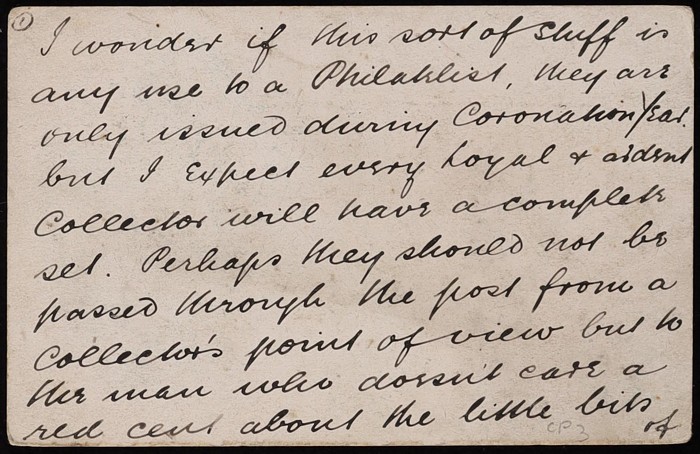 ①
I wonder if this sort of stuff is
any use to a Philatelist, they are
only issued during Coronation Year.
but I Expect every Loyal & ardent
Collector will have a complete
set. Perhaps they should not be
passed through the post from a
Collector's point of view but to
the man who doesn't care a
red cent about the little bits
of
CP3